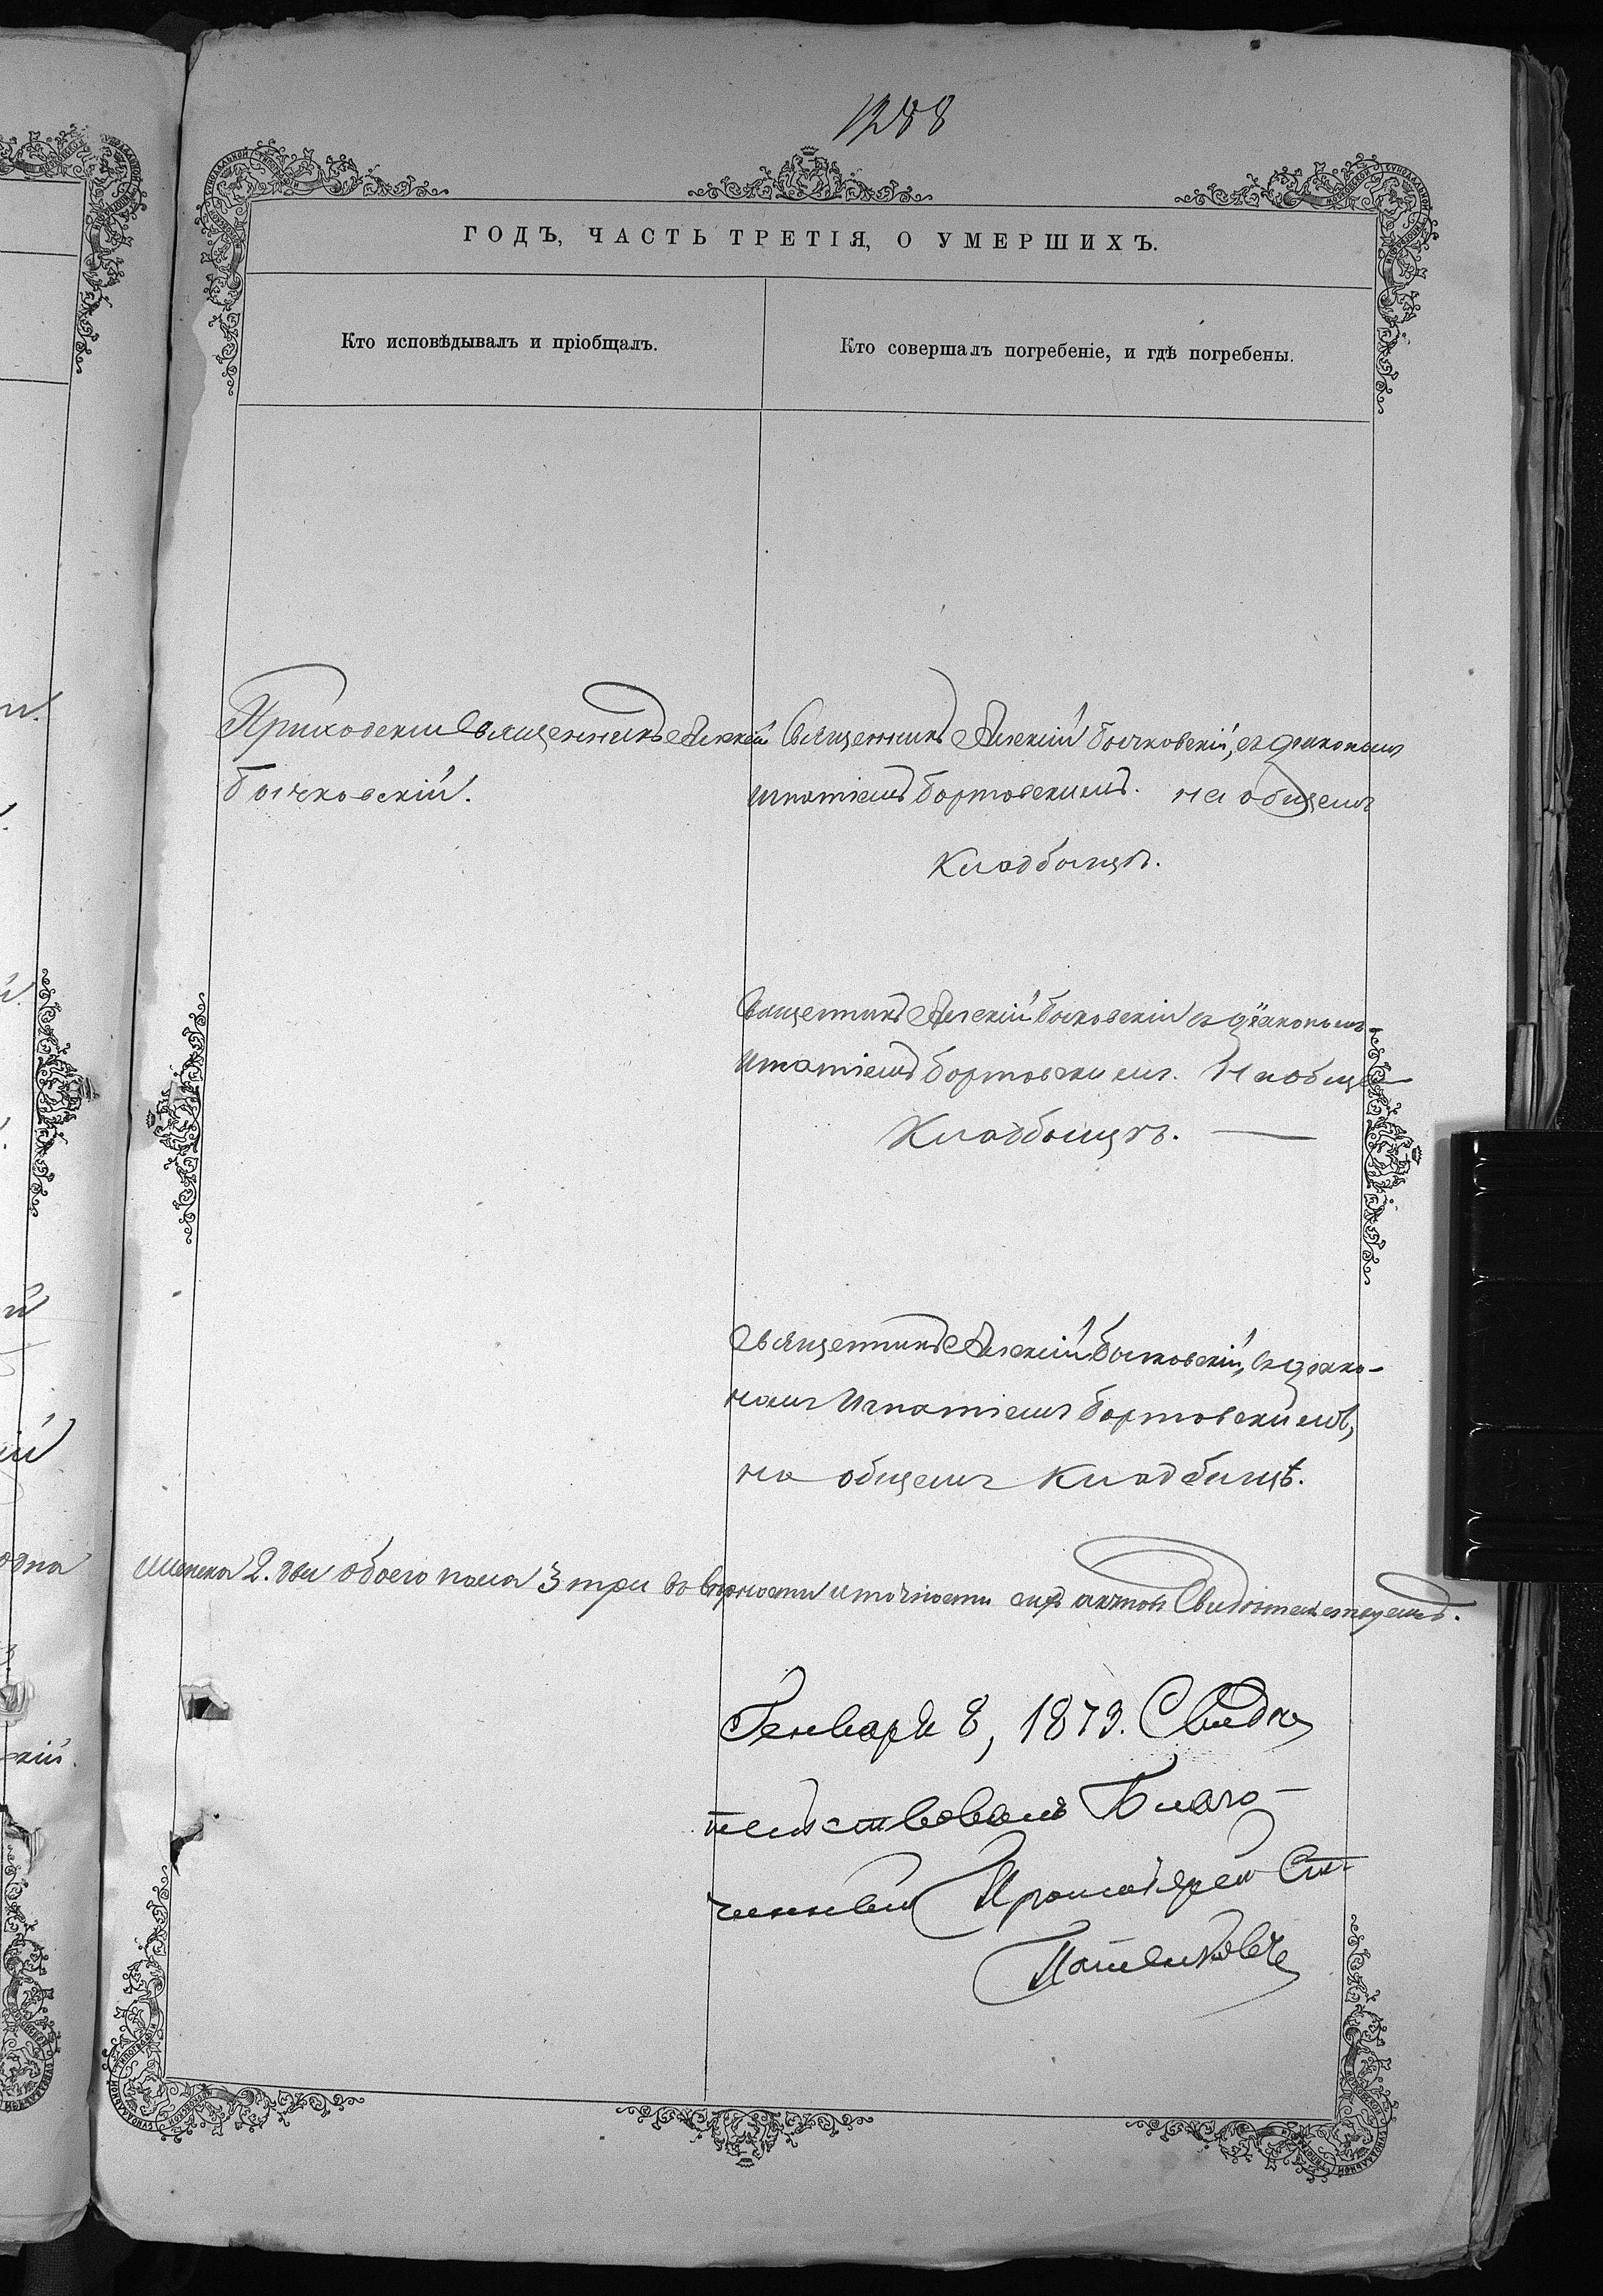 1288
ГОДЪ, ЧАСТЬ ТРЕТІЯ, О УМЕРШИХЪ.
Кто исповѣдывалъ и пріобщалъ.
Кто совершалъ погребеніе, и гдѣ погребены.
Приходскій Священникъ Алексій
Бычковскій.
Священникъ Алексій Бычковскій, съ дьякономъ
Игнатіемъ Бортовскимъ. на общемъ
Кладбищѣ.
Священникъ Алексій Бычковскій съ дьякономъ
Игнатіемъ Бортовскимъ. На обще
Кладбищѣ.
Священникъ Алексій Бычковскій, съ дьяко-
номъ Игнатіемъ Бортовскимъ,
на общемъ Кладбищѣ.
женска 2. два обоего пола 3 три въ вѣрности и точности сихъ актовъ Свидѣтельствуемъ.
Генваря 8, 1873. Свидѣ
тельствовалъ Благо-
чинный Протоіерей Ст.